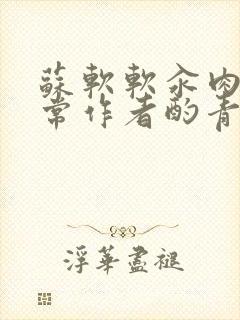 蘇軟軟汆肉
常作者酌青
浮華盡褪